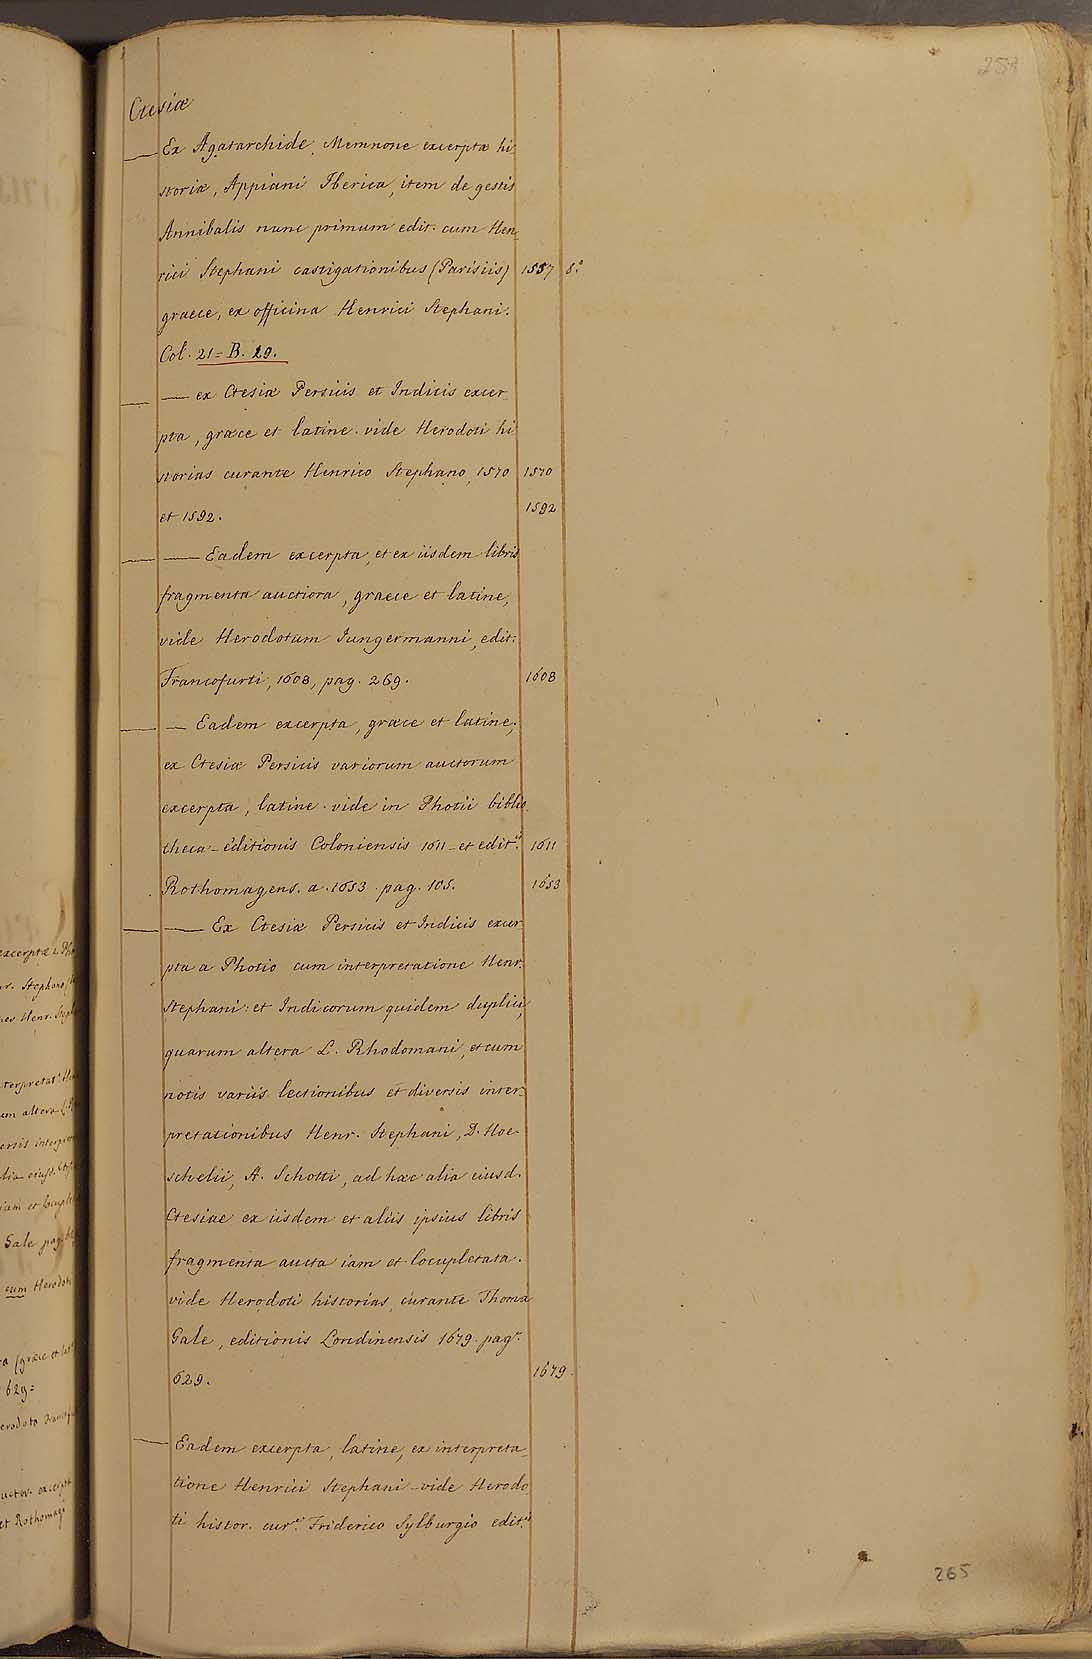 Ctesiæ
— Ex Agatarchide, Memnone excerptæ hi
storiæ, Appiani Iberica, item de gestis
Annibalis nunc primum edit. cum Hen
rici Stephani castigationibus (Parisiis) 1557 8.º
graece, ex officina Henrici Stephani.
Col. 21 = B. 29.
— — ex Ctesiæ Persicis et Indicis excer
pta, græce et latine. vide Herodoti hi
storias curante Henrico Stephano, 1570 1570
et 1592. 1592
— — Eadem excerpta, et ex iisdem libris
fragmenta auctiora, graece et latine,
vide Herodotum Iungermanni, edit.
Francofurti, 1608, pag. 269. 1608
— — Eadem excerpta, græce et latine;
ex Ctesiæ Persicis variorum auctorum
excerpta, latine. vide in Photii biblio
theca - editionis Coloniensis 1611 - et edit.is 1611
Rothomagens. a. 1653. pag. 105. 1653
— — Ex Ctesiæ Persicis et Indicis excer
pta a Photio cum interpretatione Henr.
Stephani: et Indicorum quidem duplici,
quarum altera L. Rhodomani, et cum
notis variis lectionibus et diversis inter-
pretationibus Henr. Stephani, D. Hoe-
schelii, A. Schotti, ad hæc alia eiusd.
Ctesiae ex iisdem et aliis ipsius libris
fragmenta aucta iam et locupletata.
vide Herodoti historias, curante Thoma
Gale, editionis Londinensis 1679. pag.
629. 1679
— Eadem excerpta, latine, ex interpreta
tione Henrici Stephani - vide Herodo
ti histor. cur.e Friderico Sylburgio edit.is
265